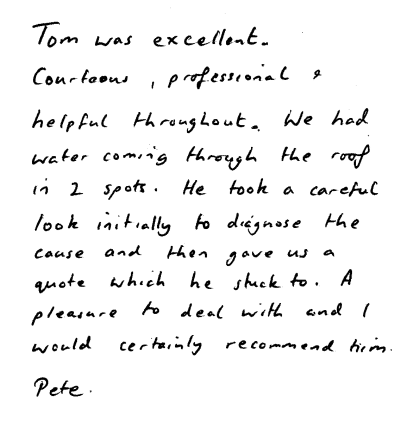 Tom was excellent.
Courteous, professional &
helpful throughout. We had
water coming through the roof
in 2 spots. He took a careful
look initially to diagnose the
cause and then gave us a
quote which he stuck to. A
pleasure to deal with and I
would certainly recommend him.
Pete.